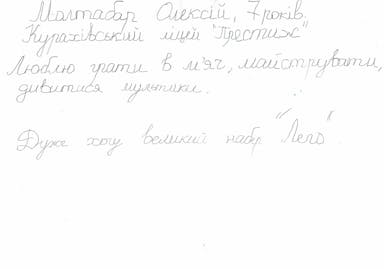 Малтабар Олексій, 7 років.
Курахівський ліцей "Престиж"
Люблю грати в м'яч, майструвати,
дивитися мультики.
Дуже хочу великий набір "Лего".